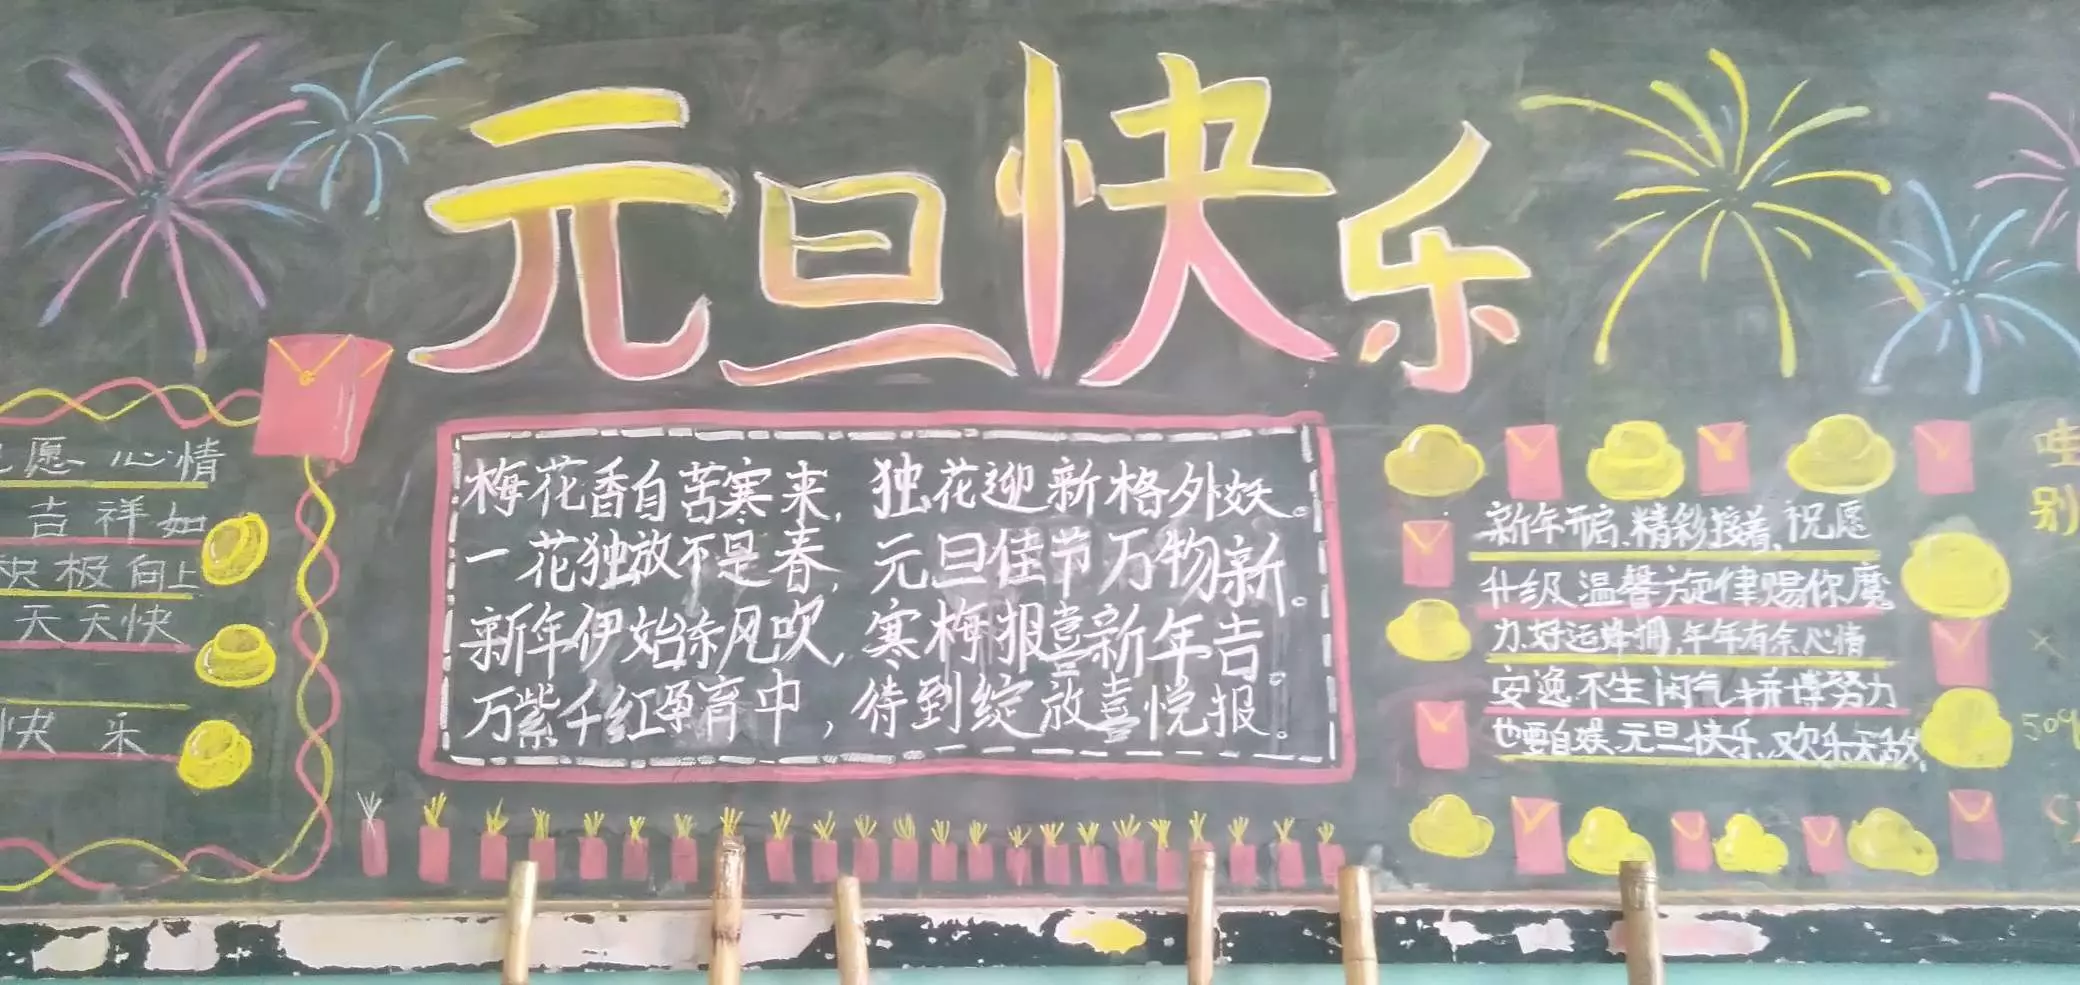 元旦快乐
愿心情
吉祥如
积极向上
天天快
快乐
梅花香自苦寒来,独花迎新格外妖。
一花独放不是春,元旦佳节万物新。
新年伊始东风吹,寒梅报喜新年告。
万紫千红孕育中,待到绽放喜悦报。
新年开启、精彩接着、祝愿
升级、温馨旋律赐你魔
力、好运蜂拥,年年有余心情
安逸、不生闲气、拼博努力
也要自娱、元旦快乐、欢乐无敌、
哇
别